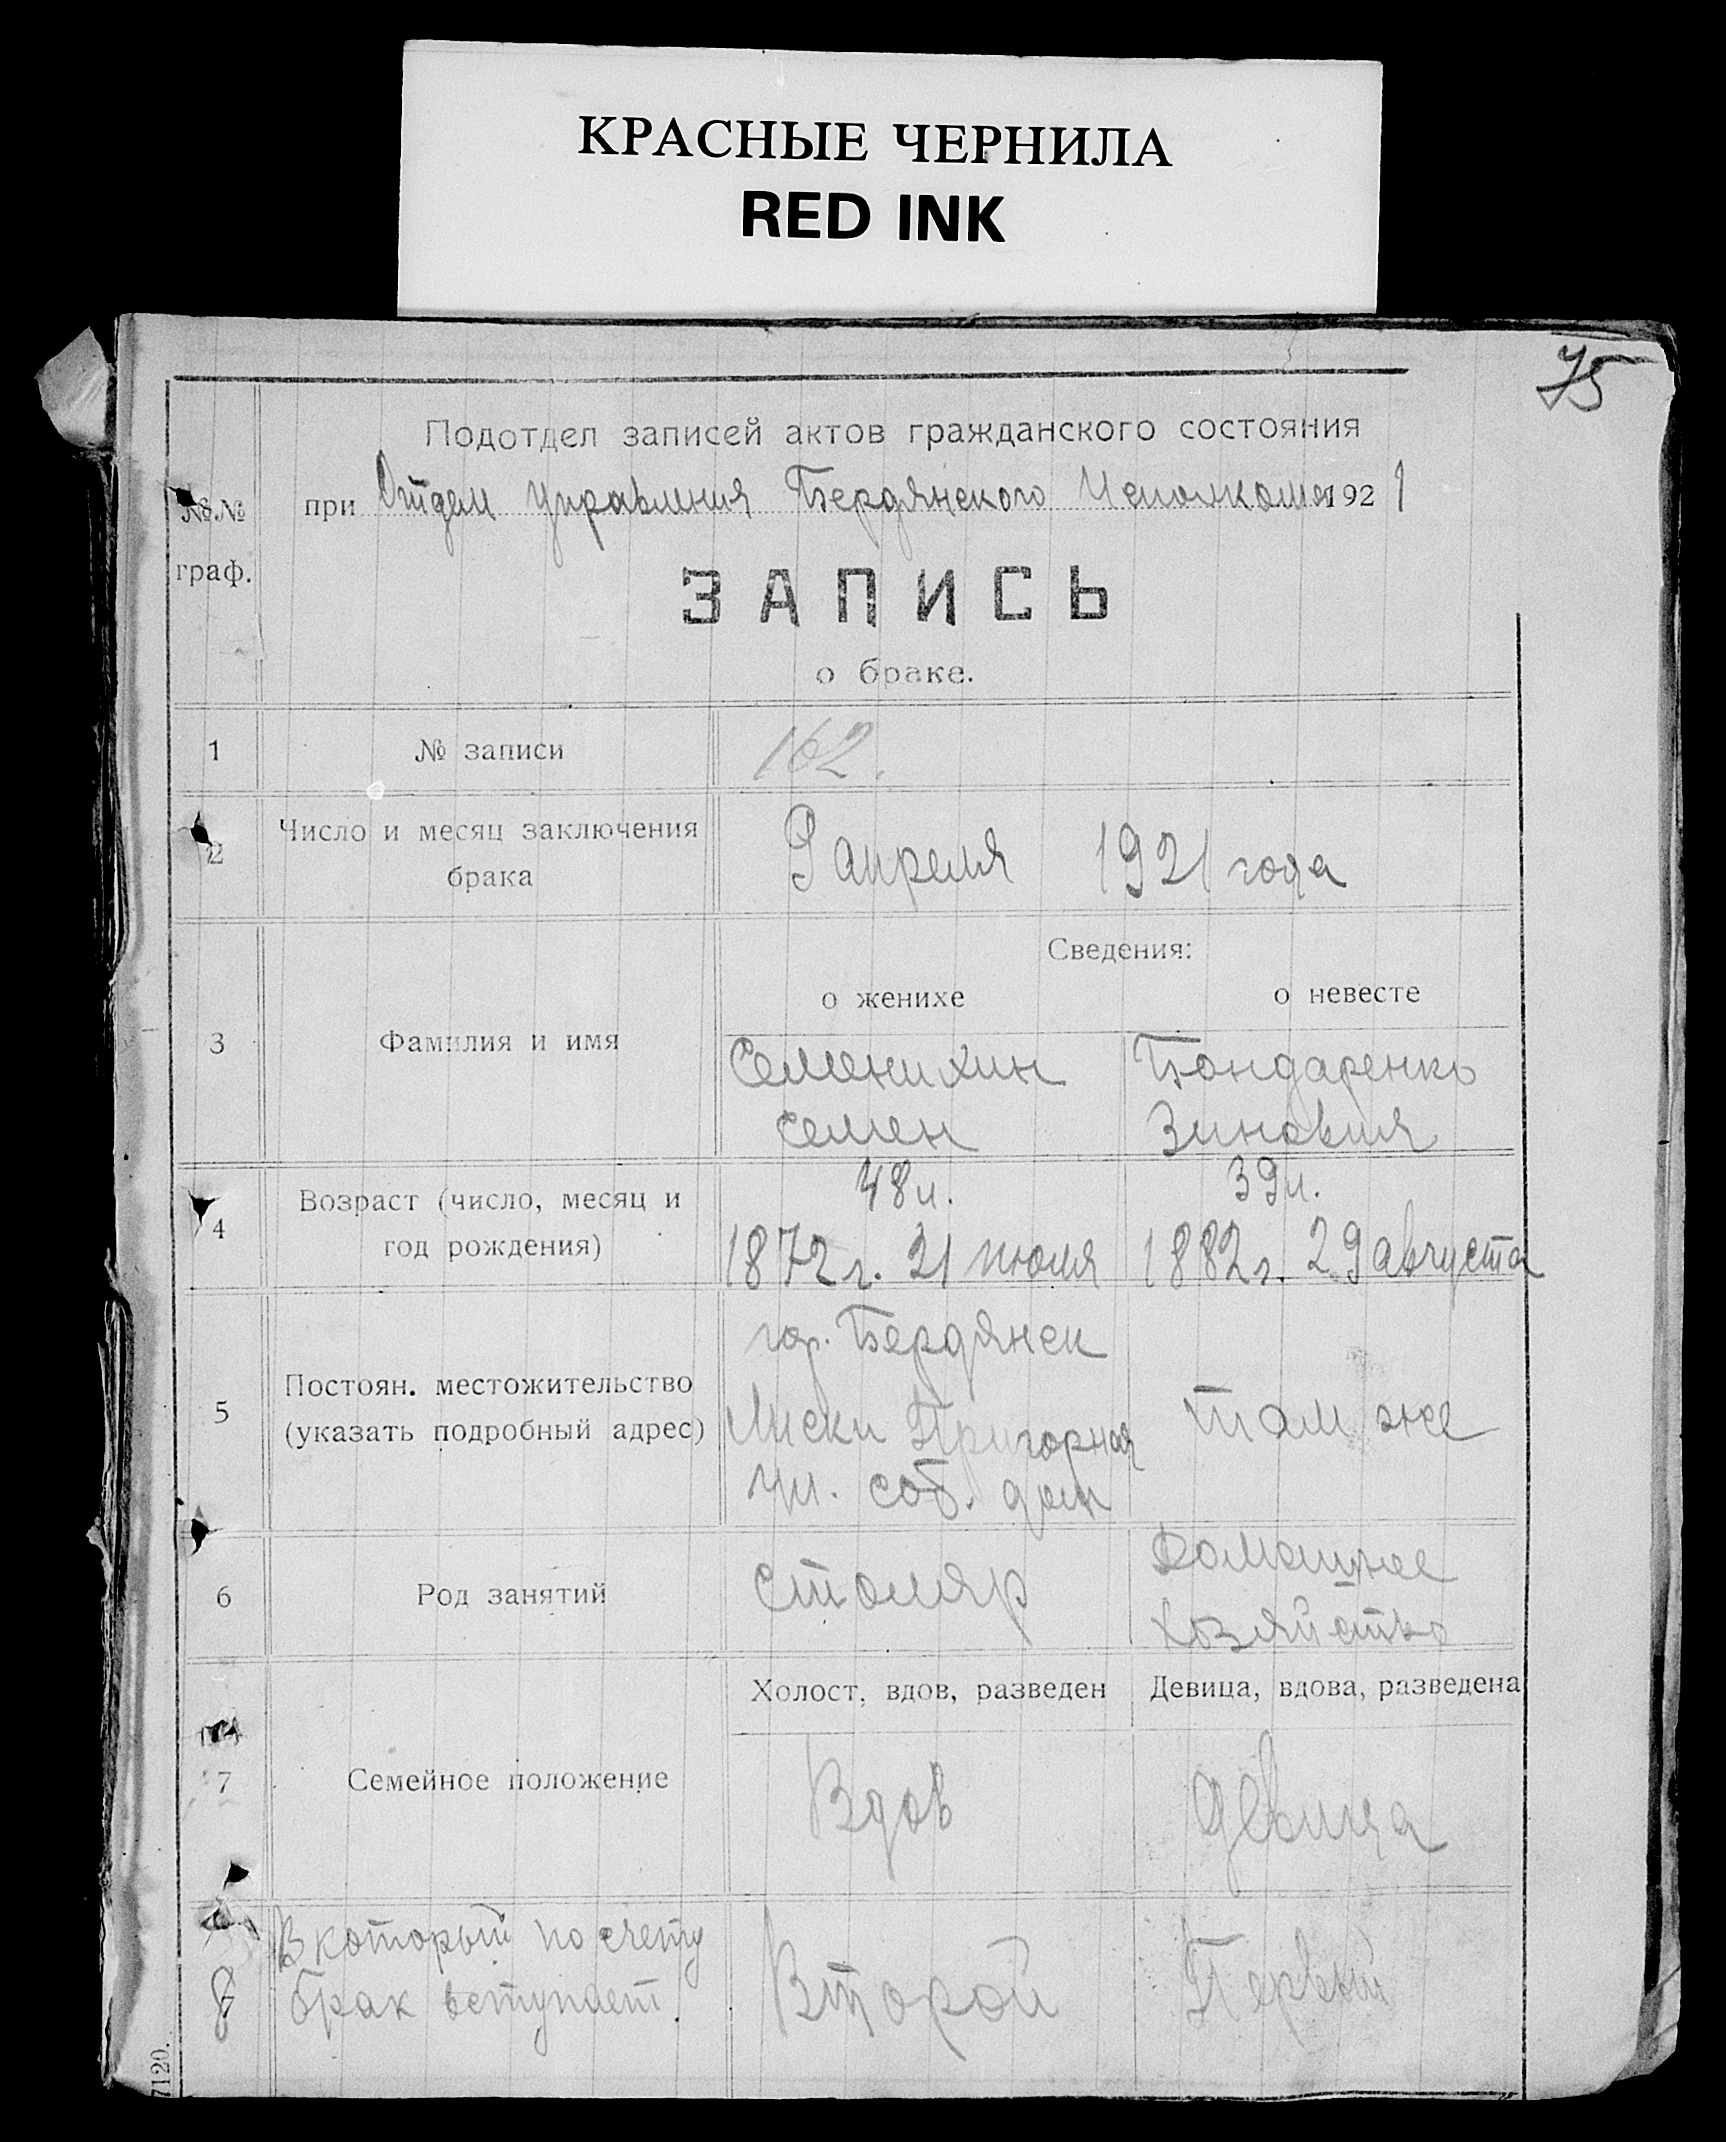 КРАСНЫЕ ЧЕРНИЛА
RED INK
75
Подотдел записей актов гражданского состояния
№№ при Отделе Управления Бердянского Исполкома 1921
граф.
ЗАПИСЬ
о браке.
1 № записи 162.
2 Число и месяц заключения брака 9 апреля 1921 года
Сведения:
о женихе о невесте
3 Фамилия и имя Семенихин Бондаренко
Семен Зиновия
48 л. 39 л.
4 Возраст (число, месяц и
год рождения) 1872 г. 21 июля 1882 г. 29 августа
гор. Бердянск
5 Постоян. местожительство
(указать подробный адрес) Лиски Пригорная там же
ул. соб. дом
6 Род занятий столяр Домашнее
хозяйство
Холост, вдов, разведен Девица, вдова, разведена
7 Семейное положение Вдов девица
8 В который по счету
брак вступает. Второй Первый
7120.